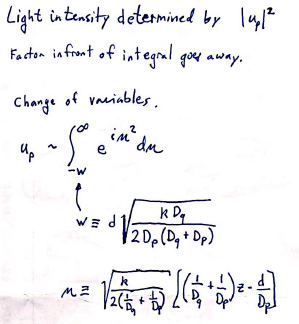 Light intensity determined by |u_p|²
Factor infront of integral goes away.
Change of variables.
u_p ~ ∫_{-w}^{∞} e^{iu²} du
w ≡ d √(k D_q / 2 D_p (D_q + D_p))
u ≡ √(k / 2(1/D_q + 1/D_p)) [(1/D_q + 1/D_p) z - d/D_p]